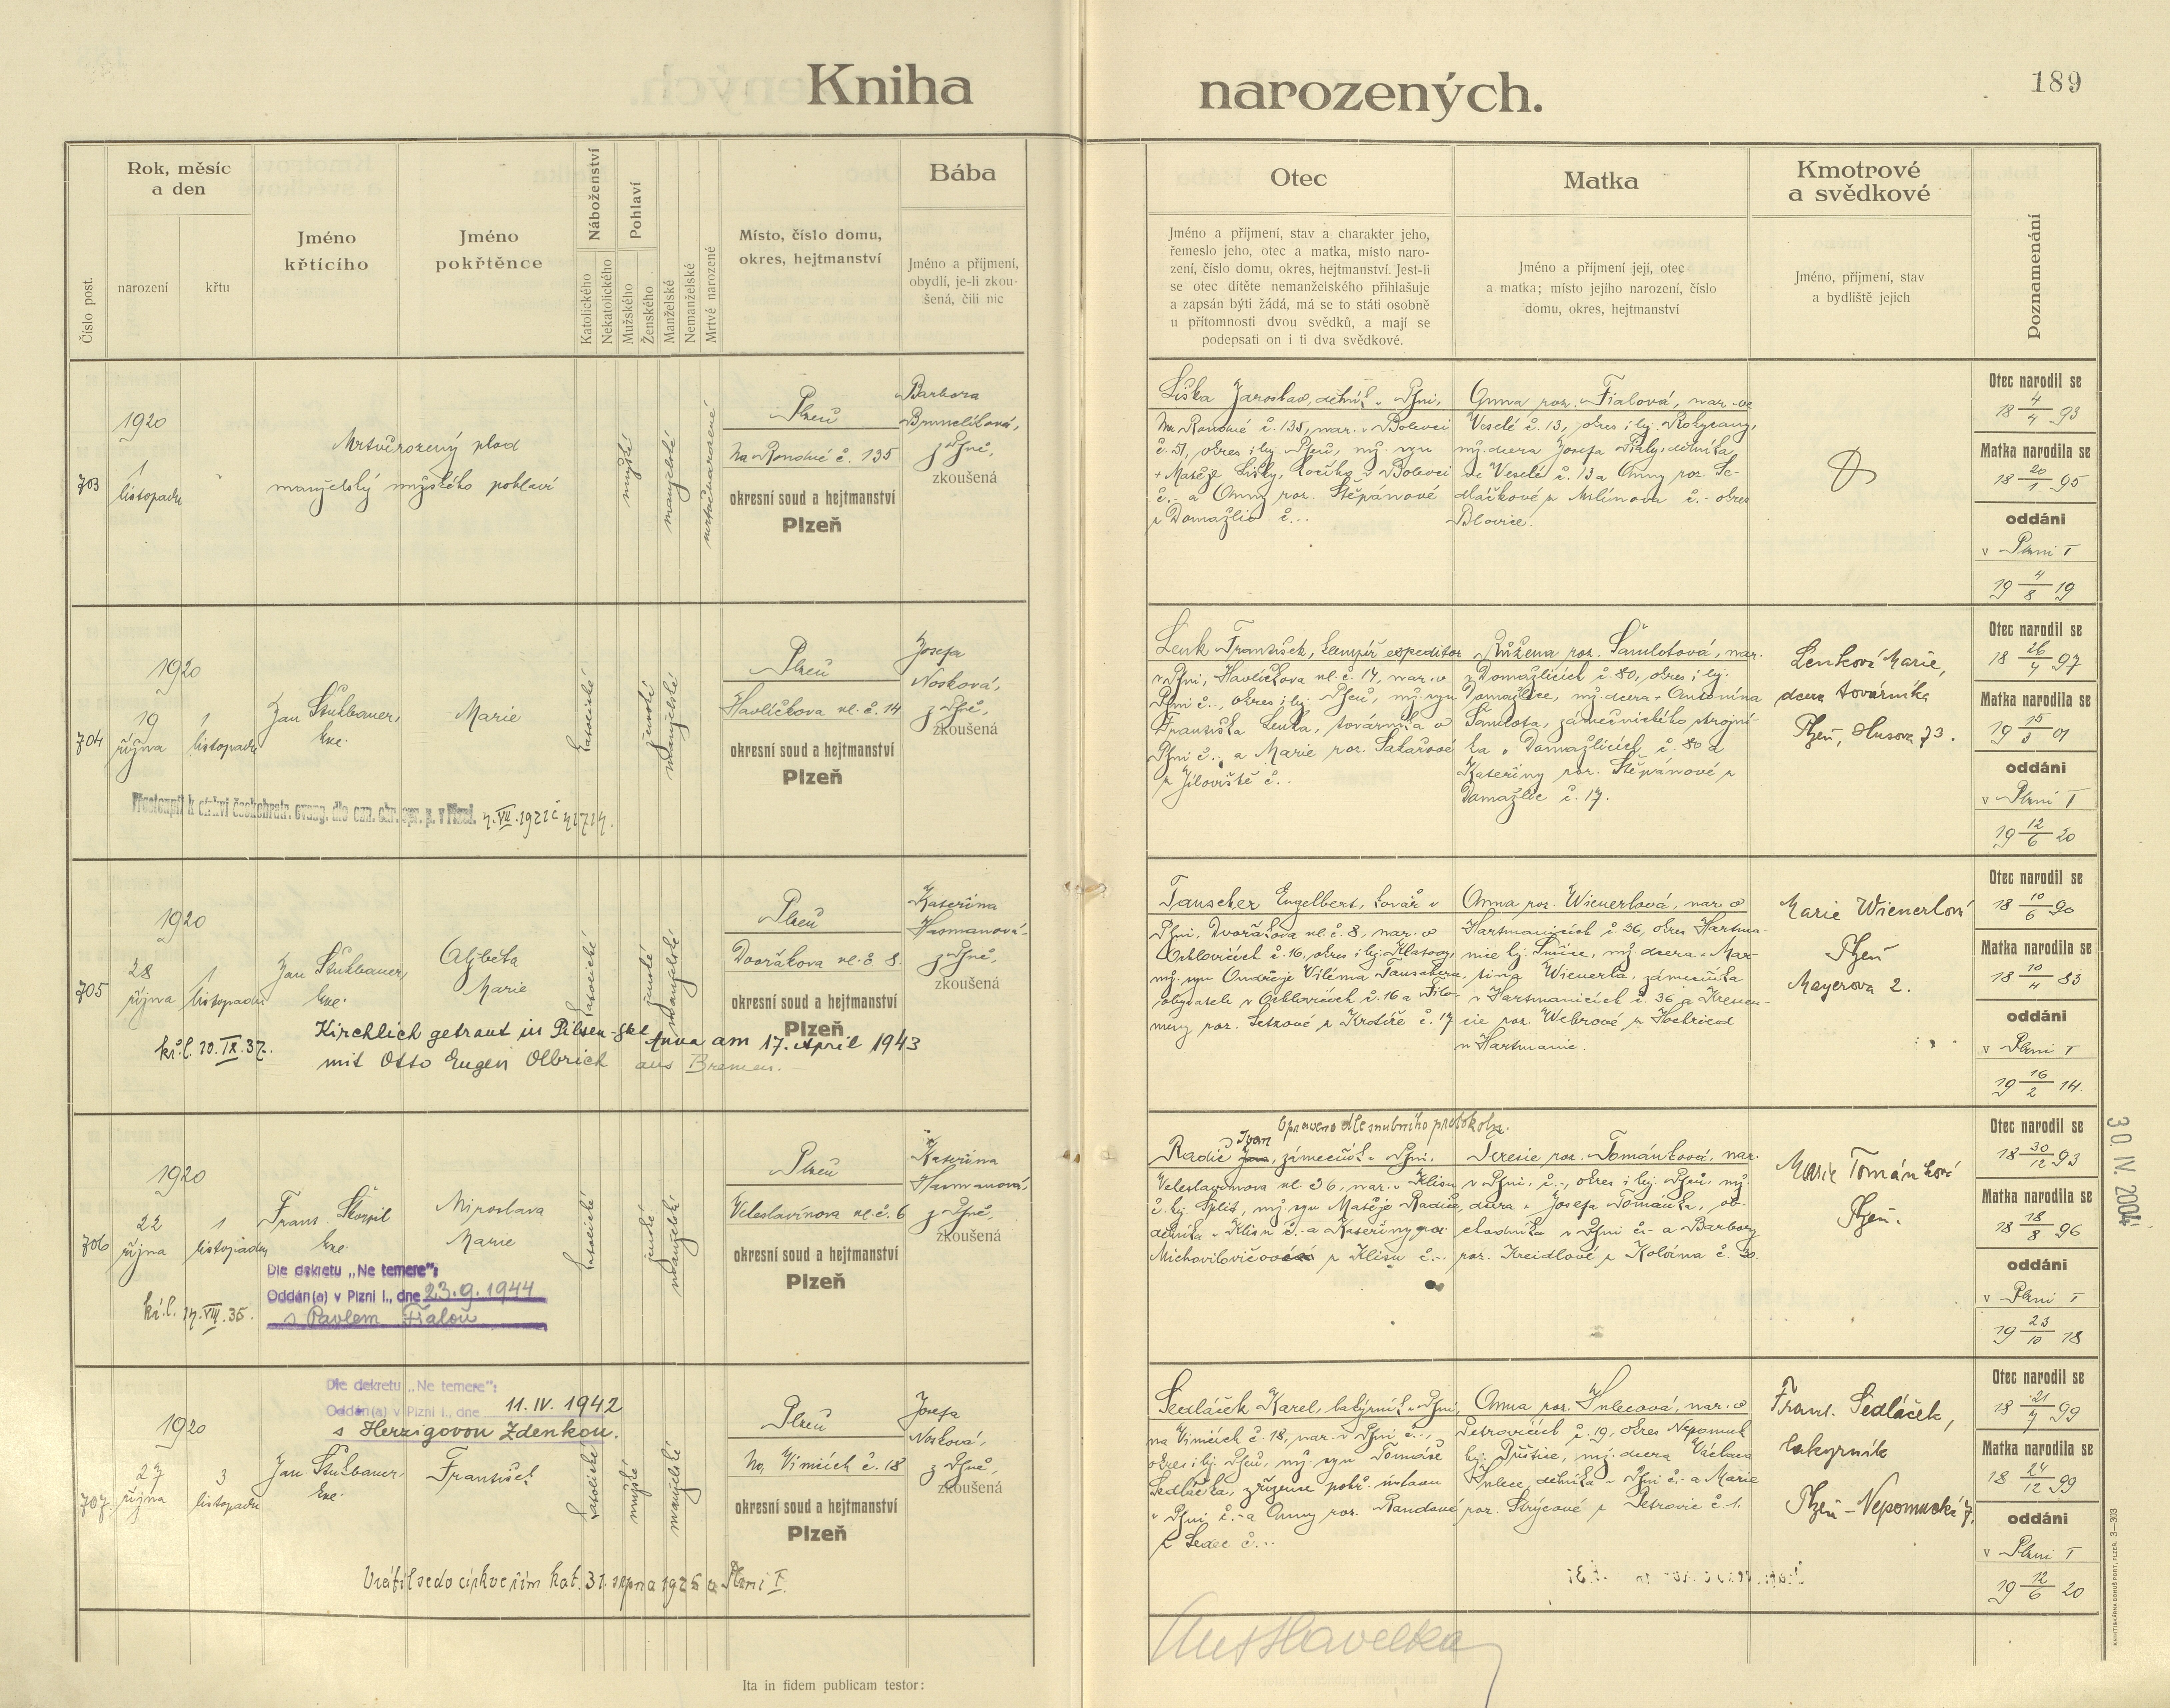 Kniha narozených.
189
Číslo post.
Rok, měsíc
a den
narození
křtu
Jméno
křtícího
Jméno
pokřtěnce
Náboženství
Katolického
Nekatolického
Pohlaví
Mužského
Ženského
Manželské
Nemanželské
Mrtvě narozené
Místo, číslo domu,
okres, hejtmanství
Bába
Jméno a příjmení,
obydlí, je-li zkou-
šená, čili nic
Otec
Jméno a příjmení, stav a charakter jeho,
řemeslo jeho, otec a matka, místo naro-
zení, číslo domu, okres, hejtmanství. Jest-li
se otec dítěte nemanželského přihlašuje
a zapsán býti žádá, má se to státi osobně
u přítomnosti dvou svědků, a mají se
podepsati on i ti dva svědkové.
Matka
Jméno a příjmení její, otec
a matka; místo jejího narození, číslo
domu, okres, hejtmanství
Kmotrové
a svědkové
Jméno, příjmení, stav
a bydliště jejich
Poznamenání
703
1920
1
listopadu
Mrtvěrozený plod
manželský mužského pohlaví
mužské
manželské
mrtvěnarozené
Plzeň
Na Rondné č. 135
okresní soud a hejtmanství
Plzeň
Barbora
Brunclíková,
z Plzně,
zkoušená
Liška Jaroslav, dělník v Plzni,
Na Rondné č. 135, nar. v Bolevci
č. 51, okres i hej. Plzeň, mž. syn
+ Matěje Lišky, kočího v Bolevci
č. - a Anny roz. Štěpánové
z Domažlic č. -.
Anna roz. Fialová, nar. ve
Veselé č. 13, okres i hej. Rokycany,
mž. dcera Josefa Fialy, dělníka
ve Veselé č. 13 a Anny roz. Se-
dláčkové z Mílínova č. - okres
Blovice.
Otec narodil se
18 4/4 93
Matka narodila se
18 20/1 95
oddáni
v Plzni I
19 4/8 19
704
1920
19
října
1
listopadu
Jan Štukbauer,
kne.
Marie
katolické
ženské
manželské
Plzeň
Havlíčkova ul. č. 14
okresní soud a hejtmanství
Plzeň
Josefa
Nosková,
z Plzně,
zkoušená
Přestoupil k církvi českobratr. evang. dle ozn. okr. spr. p. v Plzni.
Lenk František, klempíř expeditor
v Plzni, Havlíčkova ul. č. 14, nar. v
Plzni č. -, okres i hej. Plzeň, mž. syn
Františka Lenka, továrníka v
Plzni č. - a Marie roz.
z Jíloviště č. -.
Růžena roz. Šamlotová, nar.
v Domažlicích č. 80, okres i hej.
Domažlice, mž. dcera + Antonína
Šamlota, zámečnického strojní-
ka v Domažlicích č. 80 a
Kateřiny roz. Štěpánové z
Domažlic č. 17.
Lenková Marie,
dcera továrníka
Plzeň, Husova 73.
Otec narodil se
18 26/4 97
Matka narodila se
19 15/5 01
oddáni
v Plzni I
19 12/6 20
705
1920
28
října
1
listopadu
Jan Štukbauer,
kne.
Alžběta
Marie
katolické
ženské
manželské
Plzeň
Dvořákova ul. č. 8.
okresní soud a hejtmanství
Plzeň
Kateřina
Hasmanová
z Plzně,
zkoušená
kř. l. 20. IX. 37.
Kirchlich getraut in Pilsen - Skt Anna am 17. April 1943
mit Otto Eugen Olbrich aus Bremen.
Tauscher Engelbert, kovář v
Plzni, Dvořákova ul. č. 8, nar. v
č. 16, okres i hej. Klatovy,
mž. syn Ondřeje Viléma Tauschera,
Anna roz. Wienerlová, nar. v
Hartmanicích č. 36, okres Hartma-
nice hej. Sušice, mž. dcera + Mar-
tina Wienerla, zámečníka
v Hartmanicích č. 36 a Krescen-
cie roz. Webrové z Hochried
u Hartmanic.
Marie Wienerlová
Plzeň
Mayerova 2.
Otec narodil se
18 10/6 90
Matka narodila se
18 10/4 83
oddáni
v Plzni I
19 16/2 14.
706
1920
22
října
1
listopadu
Frant. Škorpil
kne.
Miroslava
Marie
katolické
ženské
manželské
Plzeň
Veleslavínova ul. č. 6
okresní soud a hejtmanství
Plzeň
Kateřina
Hasmanová,
z Plzně,
zkoušená
Dle dekretu „Ne temere":
Oddán(a) v Plzni I., dne 23.9.1944
s Pavlem Fialou
kř. l. 14. VIII. 35.
Opraveno dle snubního protokolu.
Radić Ivan, zámečník v Plzni,
Veleslavínova ul. č. 6, nar. v Klisu
č. hej. Split, mž. syn Matěje Radiće,
dělníka v Klisu č. - a Kateřiny roz.
z Klisu č. -.
Terezie roz. Tománková, nar.
v Plzni, č. -, okres i hej. Plzeň, mž.
dcera + Josefa Tománka, ob-
chodníka v Plzni č. - a Barbory
roz. Kreidlové z Kolvína č. 30.
Marie Tománková
Plzeň.
Otec narodil se
18 30/12 93
Matka narodila se
18 18/8 96
oddáni
v Plzni I
19 23/10 18
30. IV. 2004
707.
1920
27
října
3
listopadu
Jan Štukbauer,
kne.
František
katolické
mužské
manželské
Plzeň
Na Vinicích č. 18
okresní soud a hejtmanství
Plzeň
Josefa
Nosková,
z Plzně,
zkoušená
Dle dekretu „Ne temere":
Oddán(a) v Plzni I., dne 11. IV. 1942
s Herzigovou Zdenkou.
Vrátil se do církve řím. kat. 31. srpna 1925 v Plzni I.
Sedláček Karel, lakýrník v Plzni,
na Vinicích č. 18, nar. v Plzni č. -,
okres i hej. Plzeň, mž. syn Tomáše
Sedláčka, zřízence pohř. ústavu
v Plzni č. - a Anny roz. Pandové
z Sedec č. -.
Anna roz. Hulecová, nar. v
Petrovicích č. 19, okres Nepomuk
hej. Přeštice, mž. dcera Václava
Hulece, dělníka v Plzni č. - a Marie
roz. Strýcové z Petrovic č. 1.
Frant. Sedláček,
lakyrník
Plzeň - Nepomucká 7.
Otec narodil se
18 21/7 99
Matka narodila se
18 24/12 99
oddáni
v Plzni I
19 12/6 20
Ita in fidem publicam testor:
KNIHTISKÁRNA BOHUŠ FORT, PLZEŇ. 3—303